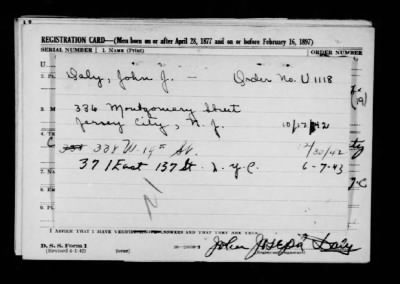 REGISTRATION CARD—(Men born on or after April 28, 1877 and on or before February 16, 1897)
SERIAL NUMBER 1. NAME (Print) ORDER NUMBER
Daly, John J. — Order No. U 1118
336 Montgomery Street
Jersey City, N. J. 10/12/42
338 W. 19th St. 12/30/42
371 East 137 St. N.Y.C. 6-7-43
I AFFIRM THAT I HAVE VERIFIED ANSWERS AND THAT THEY ARE TRUE.
D. S. S. Form 1
(Revised 4-1-42) (over)
John Joseph Daly